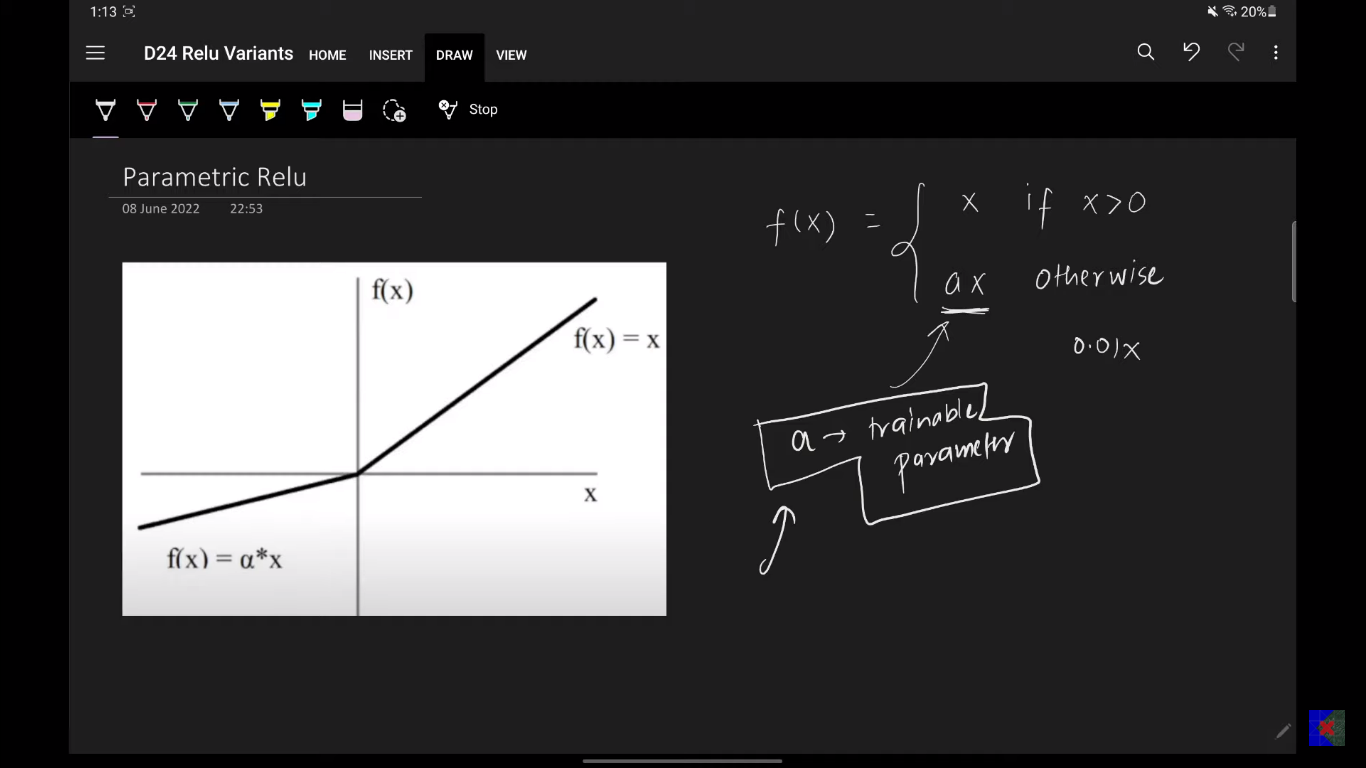 1:13
20%
D24 Relu Variants HOME INSERT DRAW VIEW
Stop
Parametric Relu
08 June 2022 22:53
f(x) = { x if x>0
ax otherwise
0.01x
a → trainable
parameter
f(x)
f(x) = x
x
f(x) = α*x